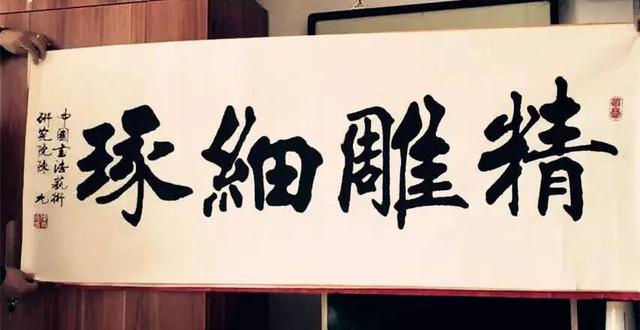 精雕細琢
中國書法藝術
研究院陳九